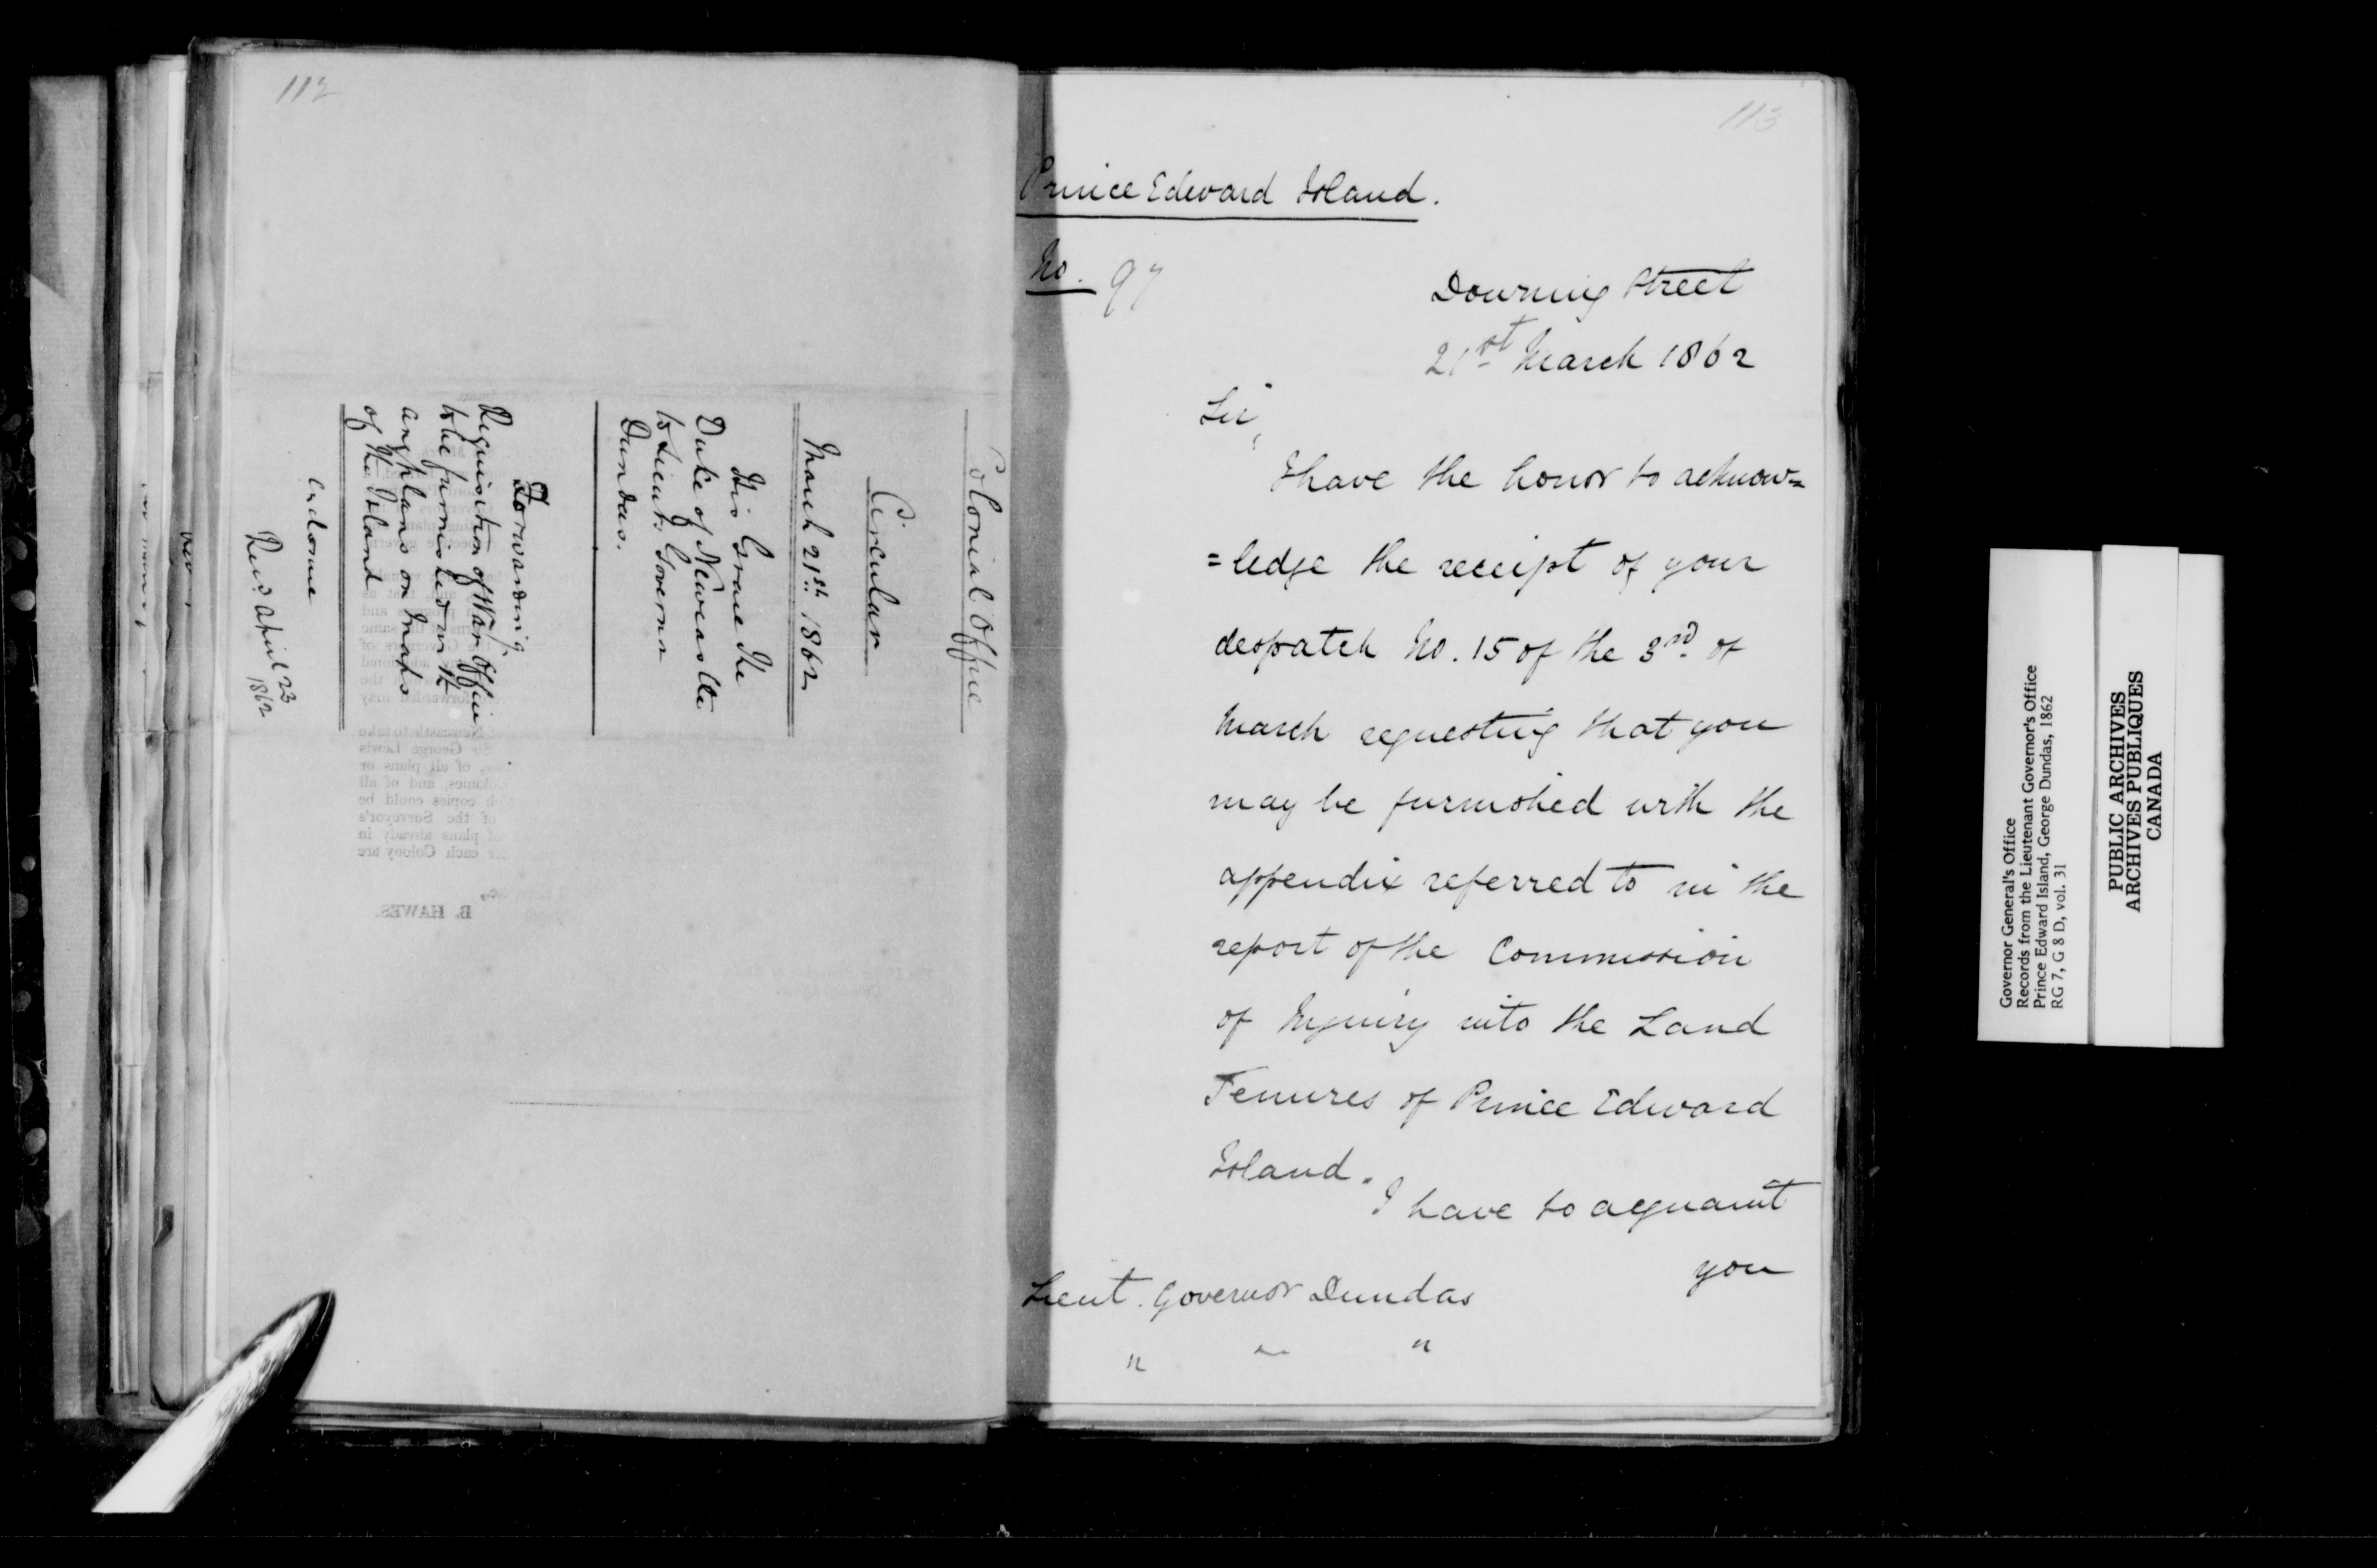 112
Colonial Office
Circular
March 21st. 1862
His Grace The
Duke of Newcastle
to Lieut: Governor
Dundas.
Forwarding
Requisition of War Office
to be furnished with
any plans or maps
of the Island
1 Enclosure
Recd April 23
1862
B. HAWES.
113
Prince Edward Island.
No. 97
Downing Street
21st March 1862
Sir,
I have the honor to acknow=
=ledge the receipt of your
despatch No. 15 of the 3rd of
March requesting that you
may be furnished with the
appendix referred to in the
report of the Commission
of Inquiry into the Land
Tenures of Prince Edward
Island.
I have to acquaint
you
Lieut. Governor Dundas
" " "
Governor General's Office
Records from the Lieutenant Governor's Office
Prince Edward Island, George Dundas, 1862
RG 7, G 8 D, vol. 31
PUBLIC ARCHIVES
ARCHIVES PUBLIQUES
CANADA